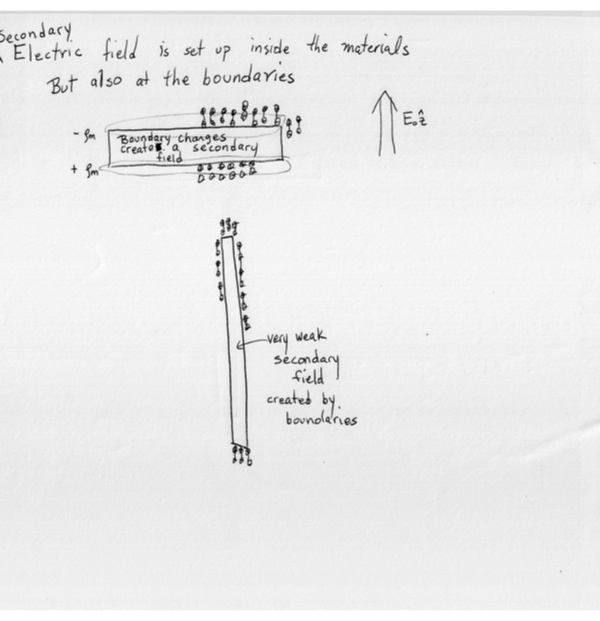 Secondary
Electric field is set up inside the materials
But also at the boundaries
E₀ẑ
- ρm
Boundary changes
creates a secondary
field
+ ρm
very weak
secondary
field
created by
boundaries